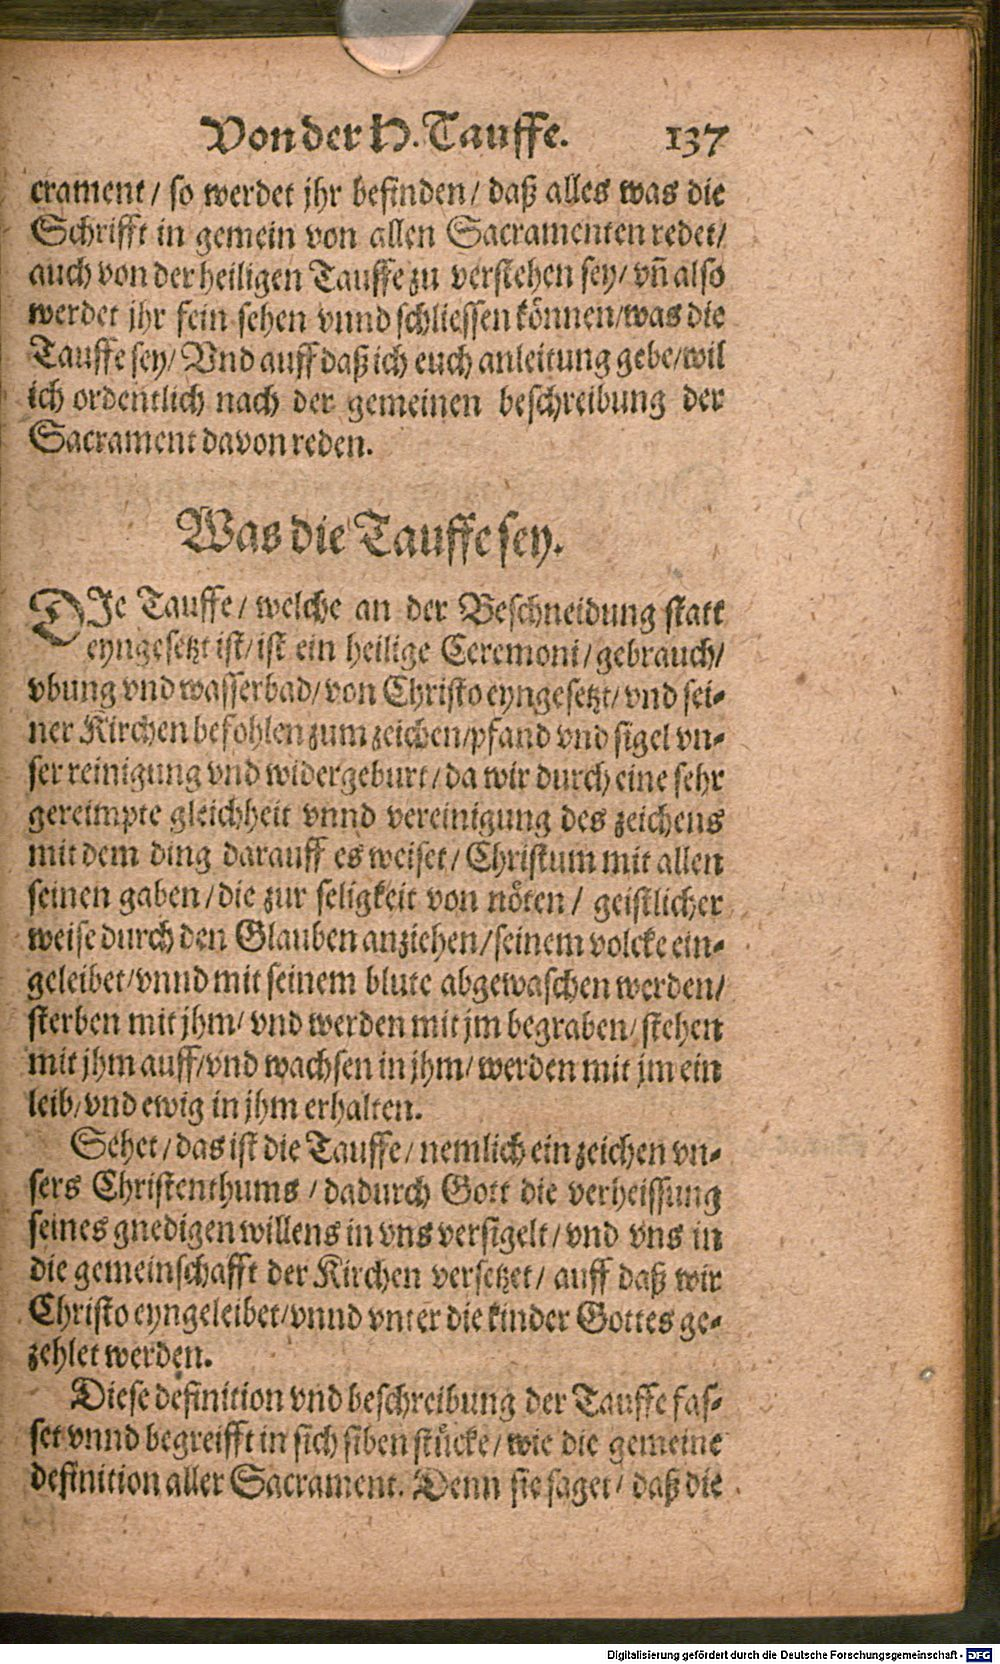 Von der H. Tauffe. 137
crament / so werdet jhr befinden / daß alles was die
Schrifft in gemein von allen Sacramenten redet /
auch von der heiligen Tauffe zu verstehen sey / vn̄ also
werdet jhr fein sehen vnnd schliessen können / was die
Tauffe sey / Vnd auff daß ich euch anleitung gebe / wil
ich ordentlich nach der gemeinen beschreibung der
Sacrament davon reden.
Was die Tauffe sey.
DIe Tauffe / welche an der Beschneidung statt
eyngesetzt ist / ist ein heilige Ceremoni / gebrauch /
vbung vnd wasserbad / von Christo eyngesetzt / vnd sei-
ner Kirchen befohlen zum zeichen / pfand vnd sigel vn-
ser reinigung vnd widergeburt / da wir durch eine sehr
gereimpte gleichheit vnnd vereinigung des zeichens
mit dem ding darauff es weiset / Christum mit allen
seinen gaben / die zur seligkeit von nöten / geistlicher
weise durch den Glauben anziehen / seinem volcke ein-
geleibet / vnnd mit seinem blute abgewaschen werden /
sterben mit jhm / vnd werden mit jm begraben / stehen
mit jhm auff / vnd wachsen in jhm / werden mit jm ein
leib / vnd ewig in jhm erhalten.
Sehet / das ist die Tauffe / nemlich ein zeichen vn-
sers Christenthums / dadurch Gott die verheissung
seines gnedigen willens in vns versigelt / vnd vns in
die gemeinschafft der Kirchen versetzet / auff daß wir
Christo eyngeleibet / vnnd vnter die kinder Gottes ge-
zehlet werden.
Diese definition vnd beschreibung der Tauffe fas-
set vnnd begreifft in sich siben stücke / wie die gemeine
definition aller Sacrament. Denn sie saget / daß die
Digitalisierung gefördert durch die Deutsche Forschungsgemeinschaft - DFG